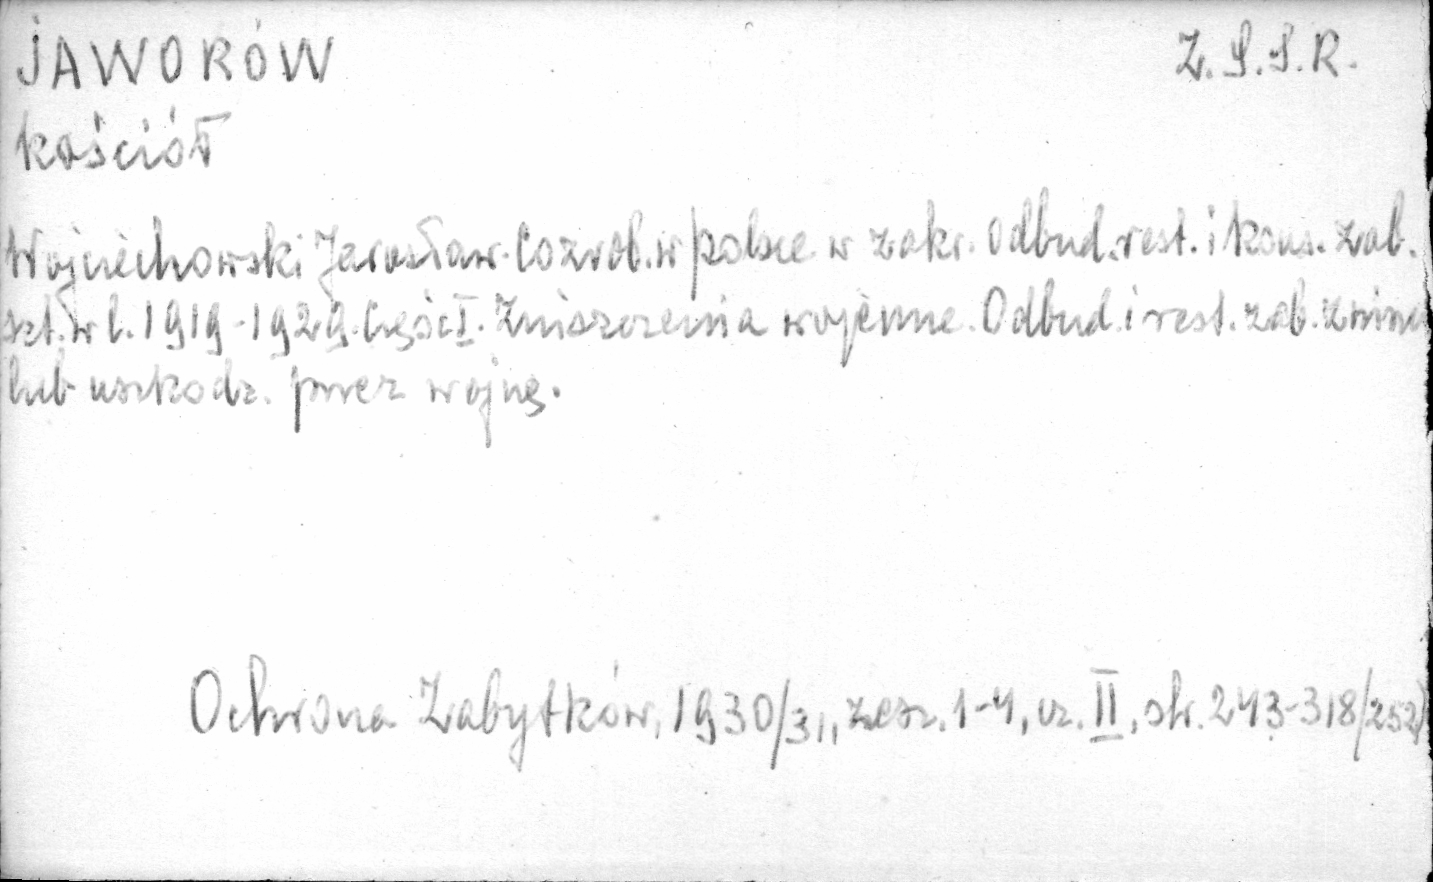 JAWORÓW Z.S.S.R.
kościół
Wojciechowski Jarosław. Co zrob. w Polsce w zakr. Odbud. rest. i kons. zab.
szt. w l. 1919-1929. Część I. Zniszczenia wojenne. Odbud. i rest. zab. zniszcz
lub uszkodz. przez wojnę.
Ochrona Zabytków, 1930/31, zesz. 1-4, cz. II, str. 243-318/252/